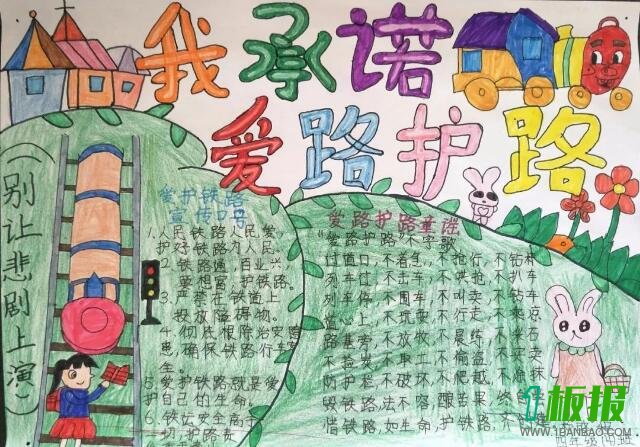 我承诺
爱路护路
（别让悲剧上演）
爱护铁路
宣传口号
1.人民铁路人民爱，
护好铁路为人民。
2.铁路通，百业兴，
要想富，护铁路。
3.严禁在铁道上
投放障碍物。
4.彻底根除治安隐
患，确保铁路行车安
全。
5.爱护铁路就是爱
护自己的生命。
6.铁路安全高于
一切，护路
爱路护路童谣
"爱路护路"不字歌
过道口，不着急，不抢行，不钻杆
列车过，不追
列车停，不围车，不叫卖，不钻车
道心上，不玩耍，不行走，不乘凉
路基旁，不放牧，不晨练，不采石
不捡炭，不取
防护栏，不破坏，不爬越，不
毁铁路，法不容，酿苦果，终
惜铁路，如生命，护铁路，
板报
WWW.1BANBAO.COM
四年级